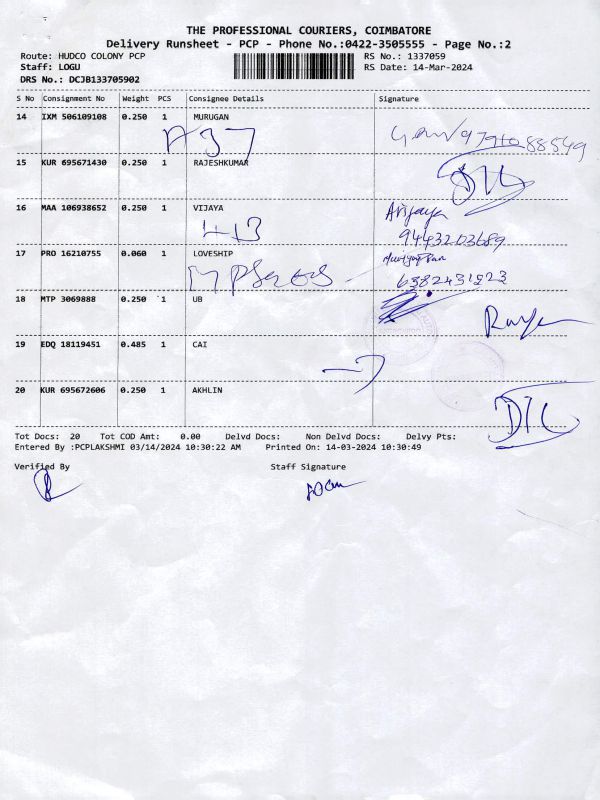 THE PROFESSIONAL COURIERS, COIMBATORE
Delivery Runsheet - PCP - Phone No.:0422-3505555 - Page No.:2
Route: HUDCO COLONY PCP RS No.: 1337059
Staff: LOGU RS Date: 14-Mar-2024
DRS No.: DCJB133705902
S No Consignment No Weight PCS Consignee Details Signature
14 IXM 506109108 0.250 1 MURUGAN
A 37 9791088549
15 KUR 695671430 0.250 1 RAJESHKUMAR
16 MAA 106938652 0.250 1 VIJAYA
9443203689
17 PRO 16210755 0.060 1 LOVESHIP
6382431523
18 MTP 3069888 0.250 1 UB
19 EDQ 18119451 0.485 1 CAI
20 KUR 695672606 0.250 1 AKHLIN
Tot Docs: 20 Tot COD Amt: 0.00 Delvd Docs: Non Delvd Docs: Delvy Pts:
Entered By :PCPLAKSHMI 03/14/2024 10:30:22 AM Printed On: 14-03-2024 10:30:49
Verified By Staff Signature